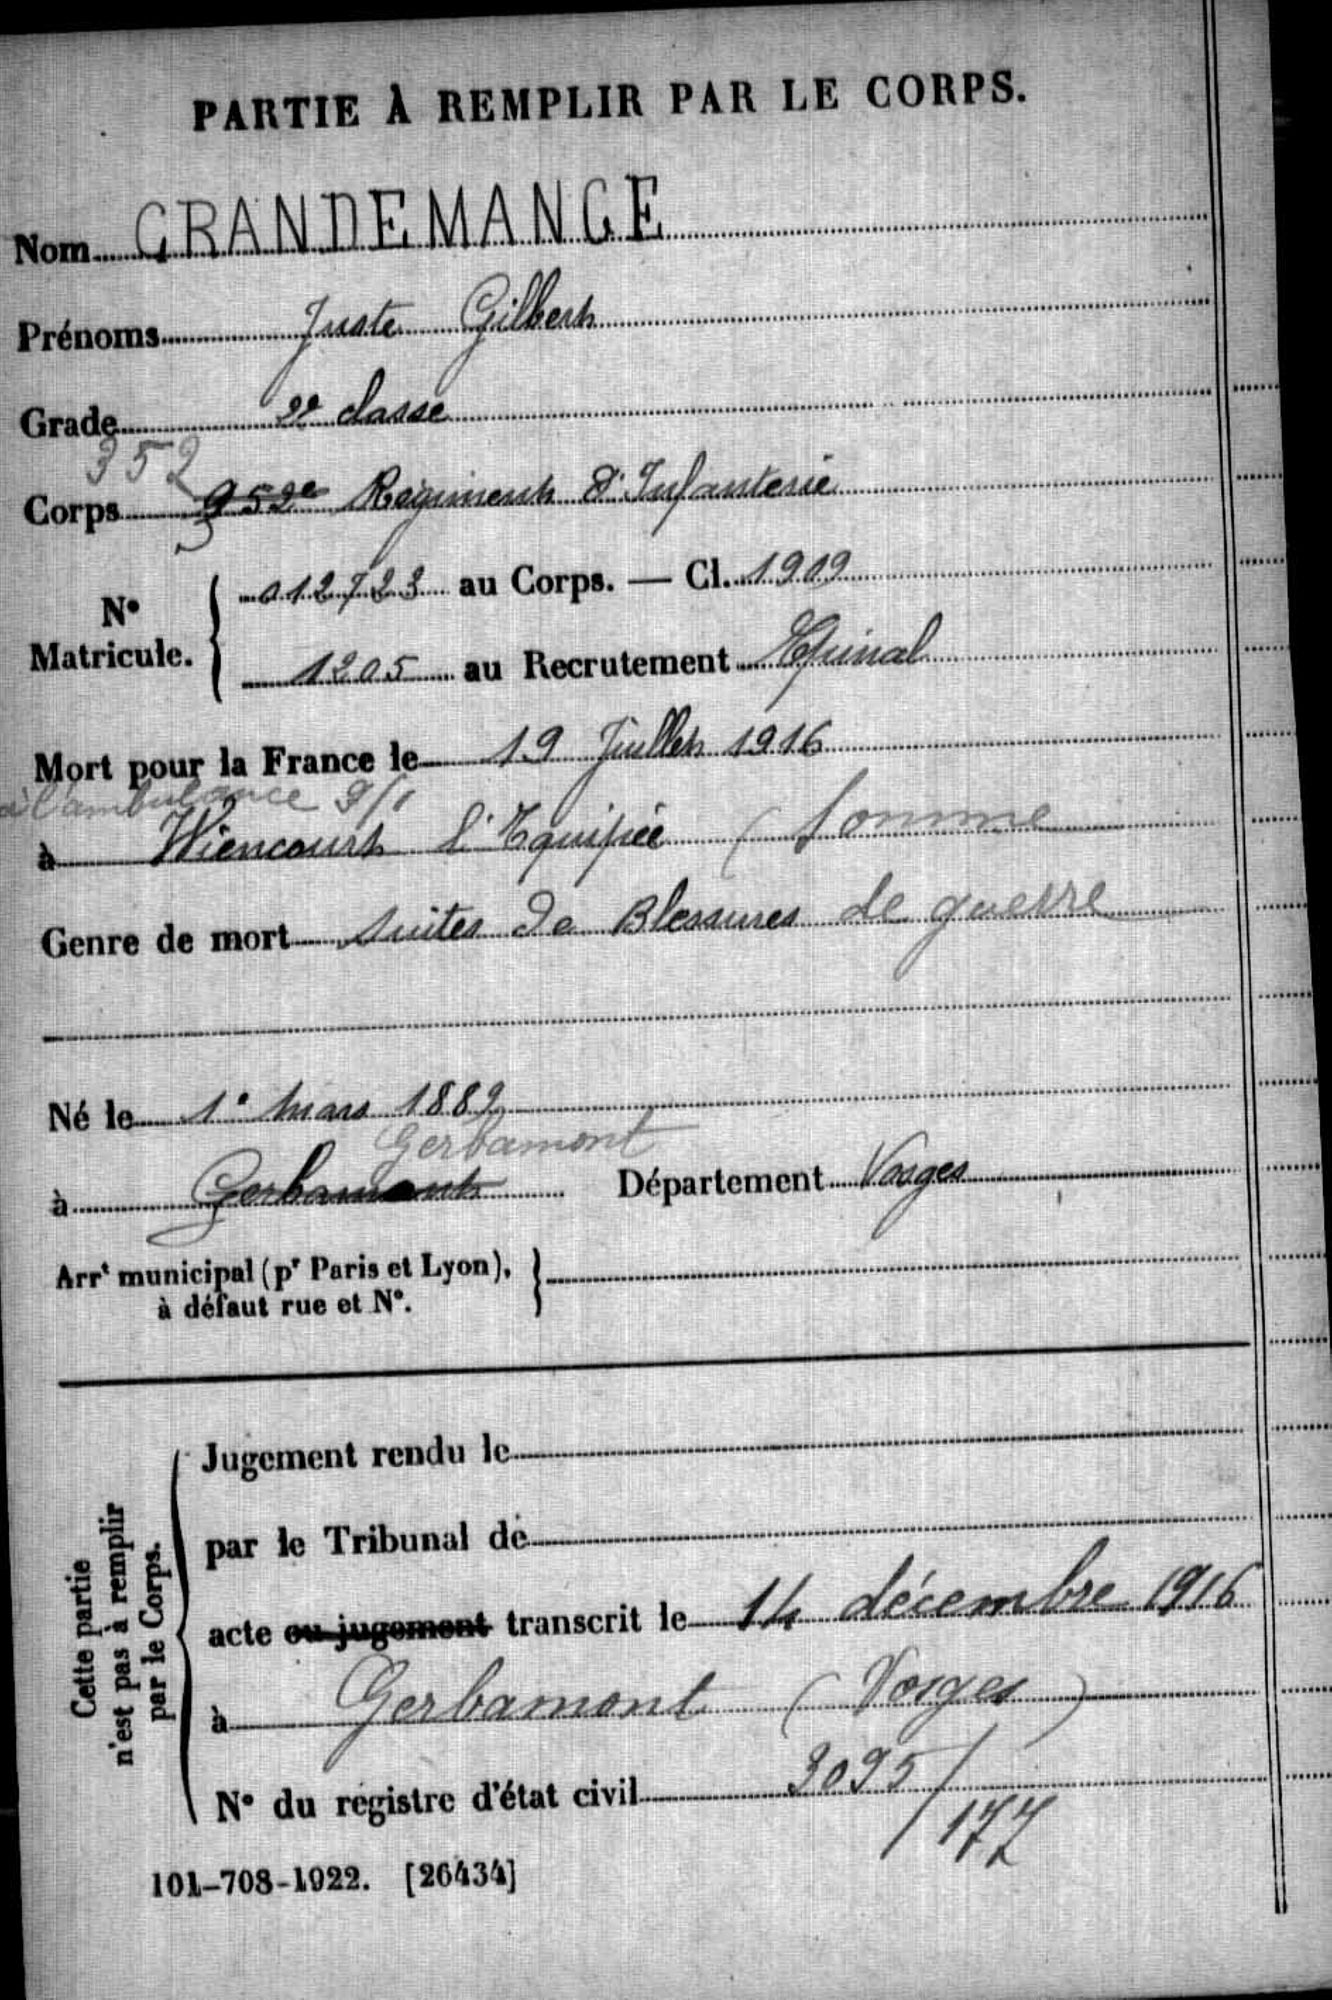 PARTIE À REMPLIR PAR LE CORPS.
Nom GRANDEMANGE
Prénoms Juste Gilbert
Grade 2e classe
352
Corps 952e Régiment d'Infanterie
N° Matricule. 012723 au Corps. — Cl. 1909
1205 au Recrutement Epinal
Mort pour la France le 19 Juillet 1916
à l'ambulance 9/1
à Wiencourt l'Equipée (Somme
Genre de mort suites de Blessures de guerre
Né le 1° Mars 1889
Gerbamont
à Gerbamont Département Vosges
Arrt municipal (pr Paris et Lyon),
à défaut rue et N°.
Cette partie
n'est pas à remplir
par le Corps.
Jugement rendu le
par le Tribunal de
acte ou jugement transcrit le 14 décembre 1916
à Gerbamont (Vosges)
N° du registre d'état civil 3095/
177
101-708-1922. [26434]